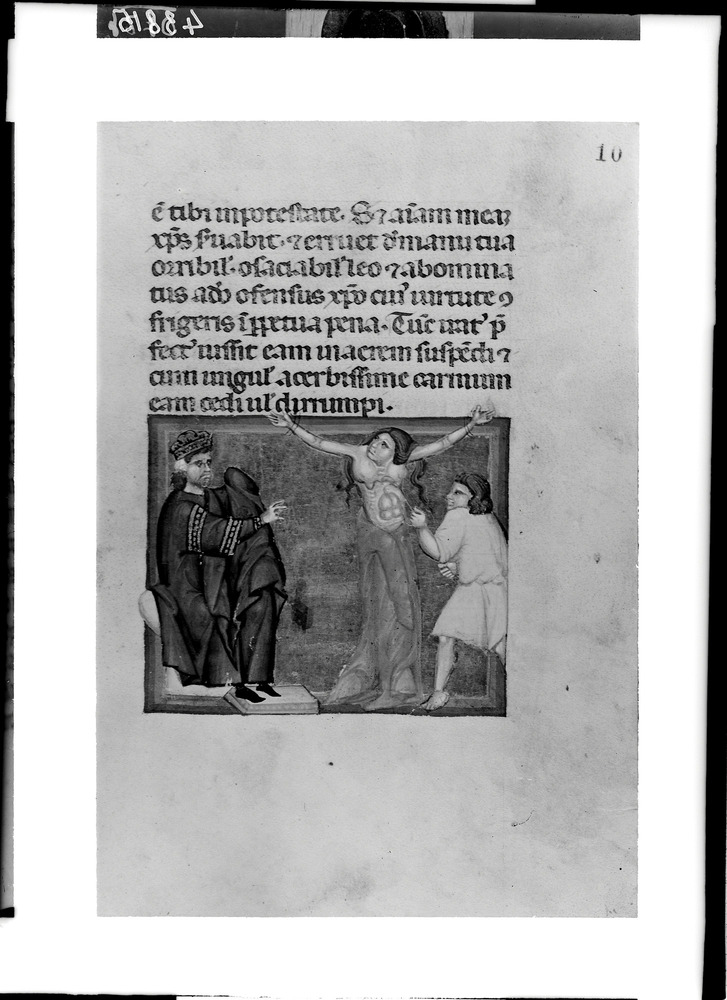 43815
10
ē tibi in potestate. S⁊ aīam meā
xp̄s s̄uabit. ⁊ eruet d̄ manu tua
orribil'. o saciabil' leo ⁊ abomina
tus a dō ofensus xp̄o cui' uirtute ꝯ
frigeris ī ꝑpetua pena. Tūc irat' p̄
fect' iussit eam in aerem suspēdi ⁊
cum ungul' acerbissime carnium
eam cedi ul' dirrumpi.